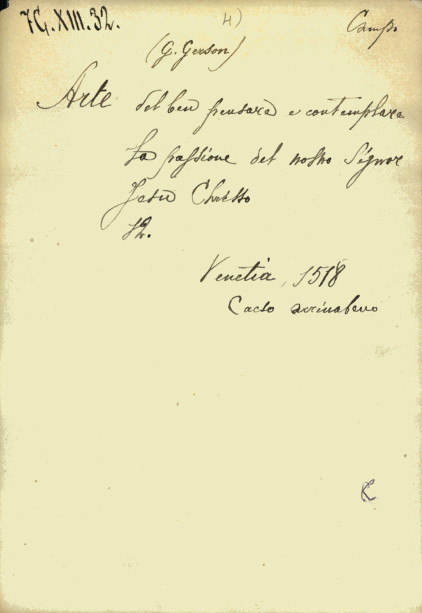 7G.XIII.32.
4)
Campo
(G. Gerson)
Arte del ben pensara e contemplara
La passione del nostro Signor
Jesu Christo
12.
Venetia, 1518
arrinabeno